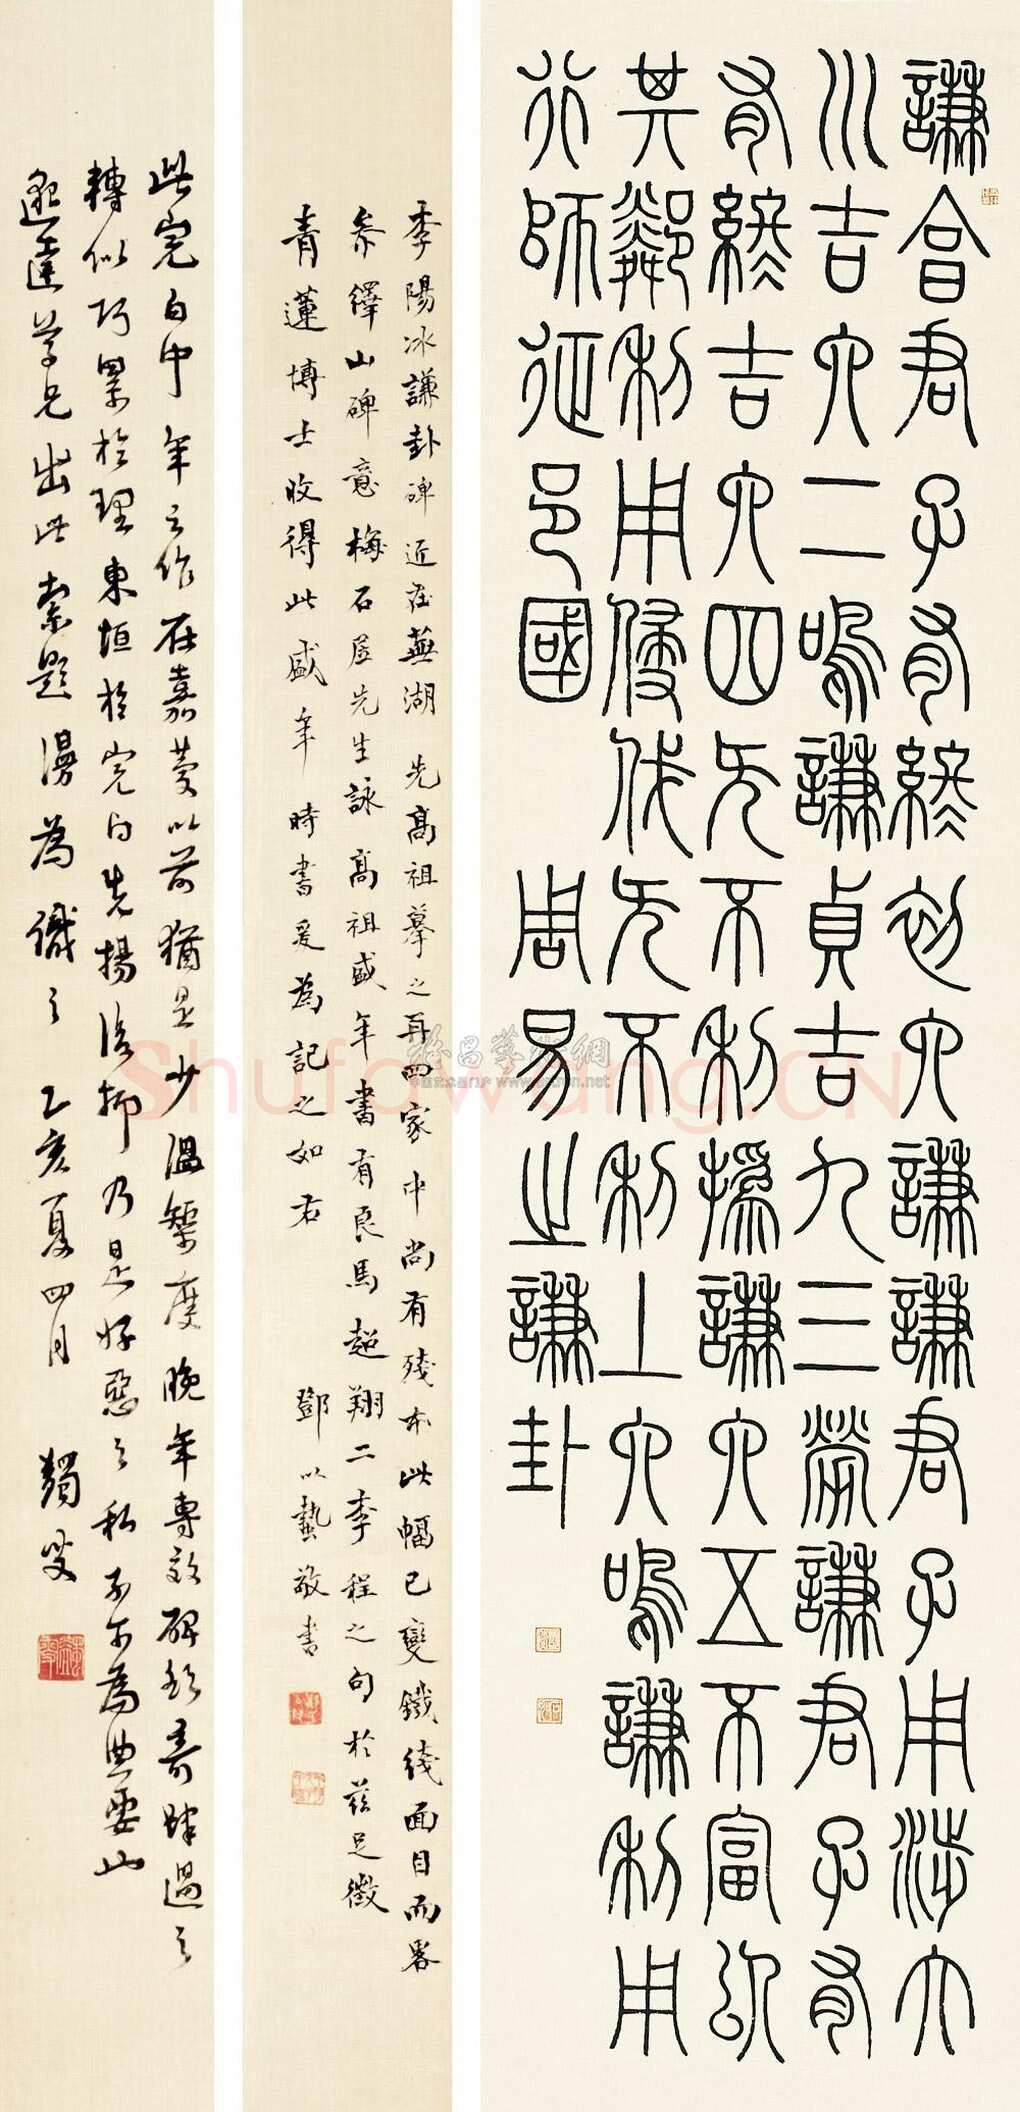 謙亨君子有終初六謙謙君子用涉大
川吉六二鳴謙貞吉九三勞謙君子有
有終吉六四无不利撝謙六五不富以
其鄰利用侵伐无不利上六鳴謙利用
行師征邑國 周易之謙卦
李陽冰謙卦碑近在蕪湖 先高祖摹之再四家中尚有殘本此幅已變鐵綫面目而畧
叅繹山碑意梅石居先生詠高祖盛年書有良馬超翔二李程之句於茲足徵
青蓮博士收得此盛年 時書爰為記之如右 鄧以蟄敬書
此完白中年之作在嘉慶以前猶是少溫榘度晚年專效碑額奇肆過之
轉似巧累於理東垣於完白先揚後抑乃是好惡之私不可為典要也
達尊兄出此索題漫為識之 乙亥夏四月 蠲叟
Shufawang.CN